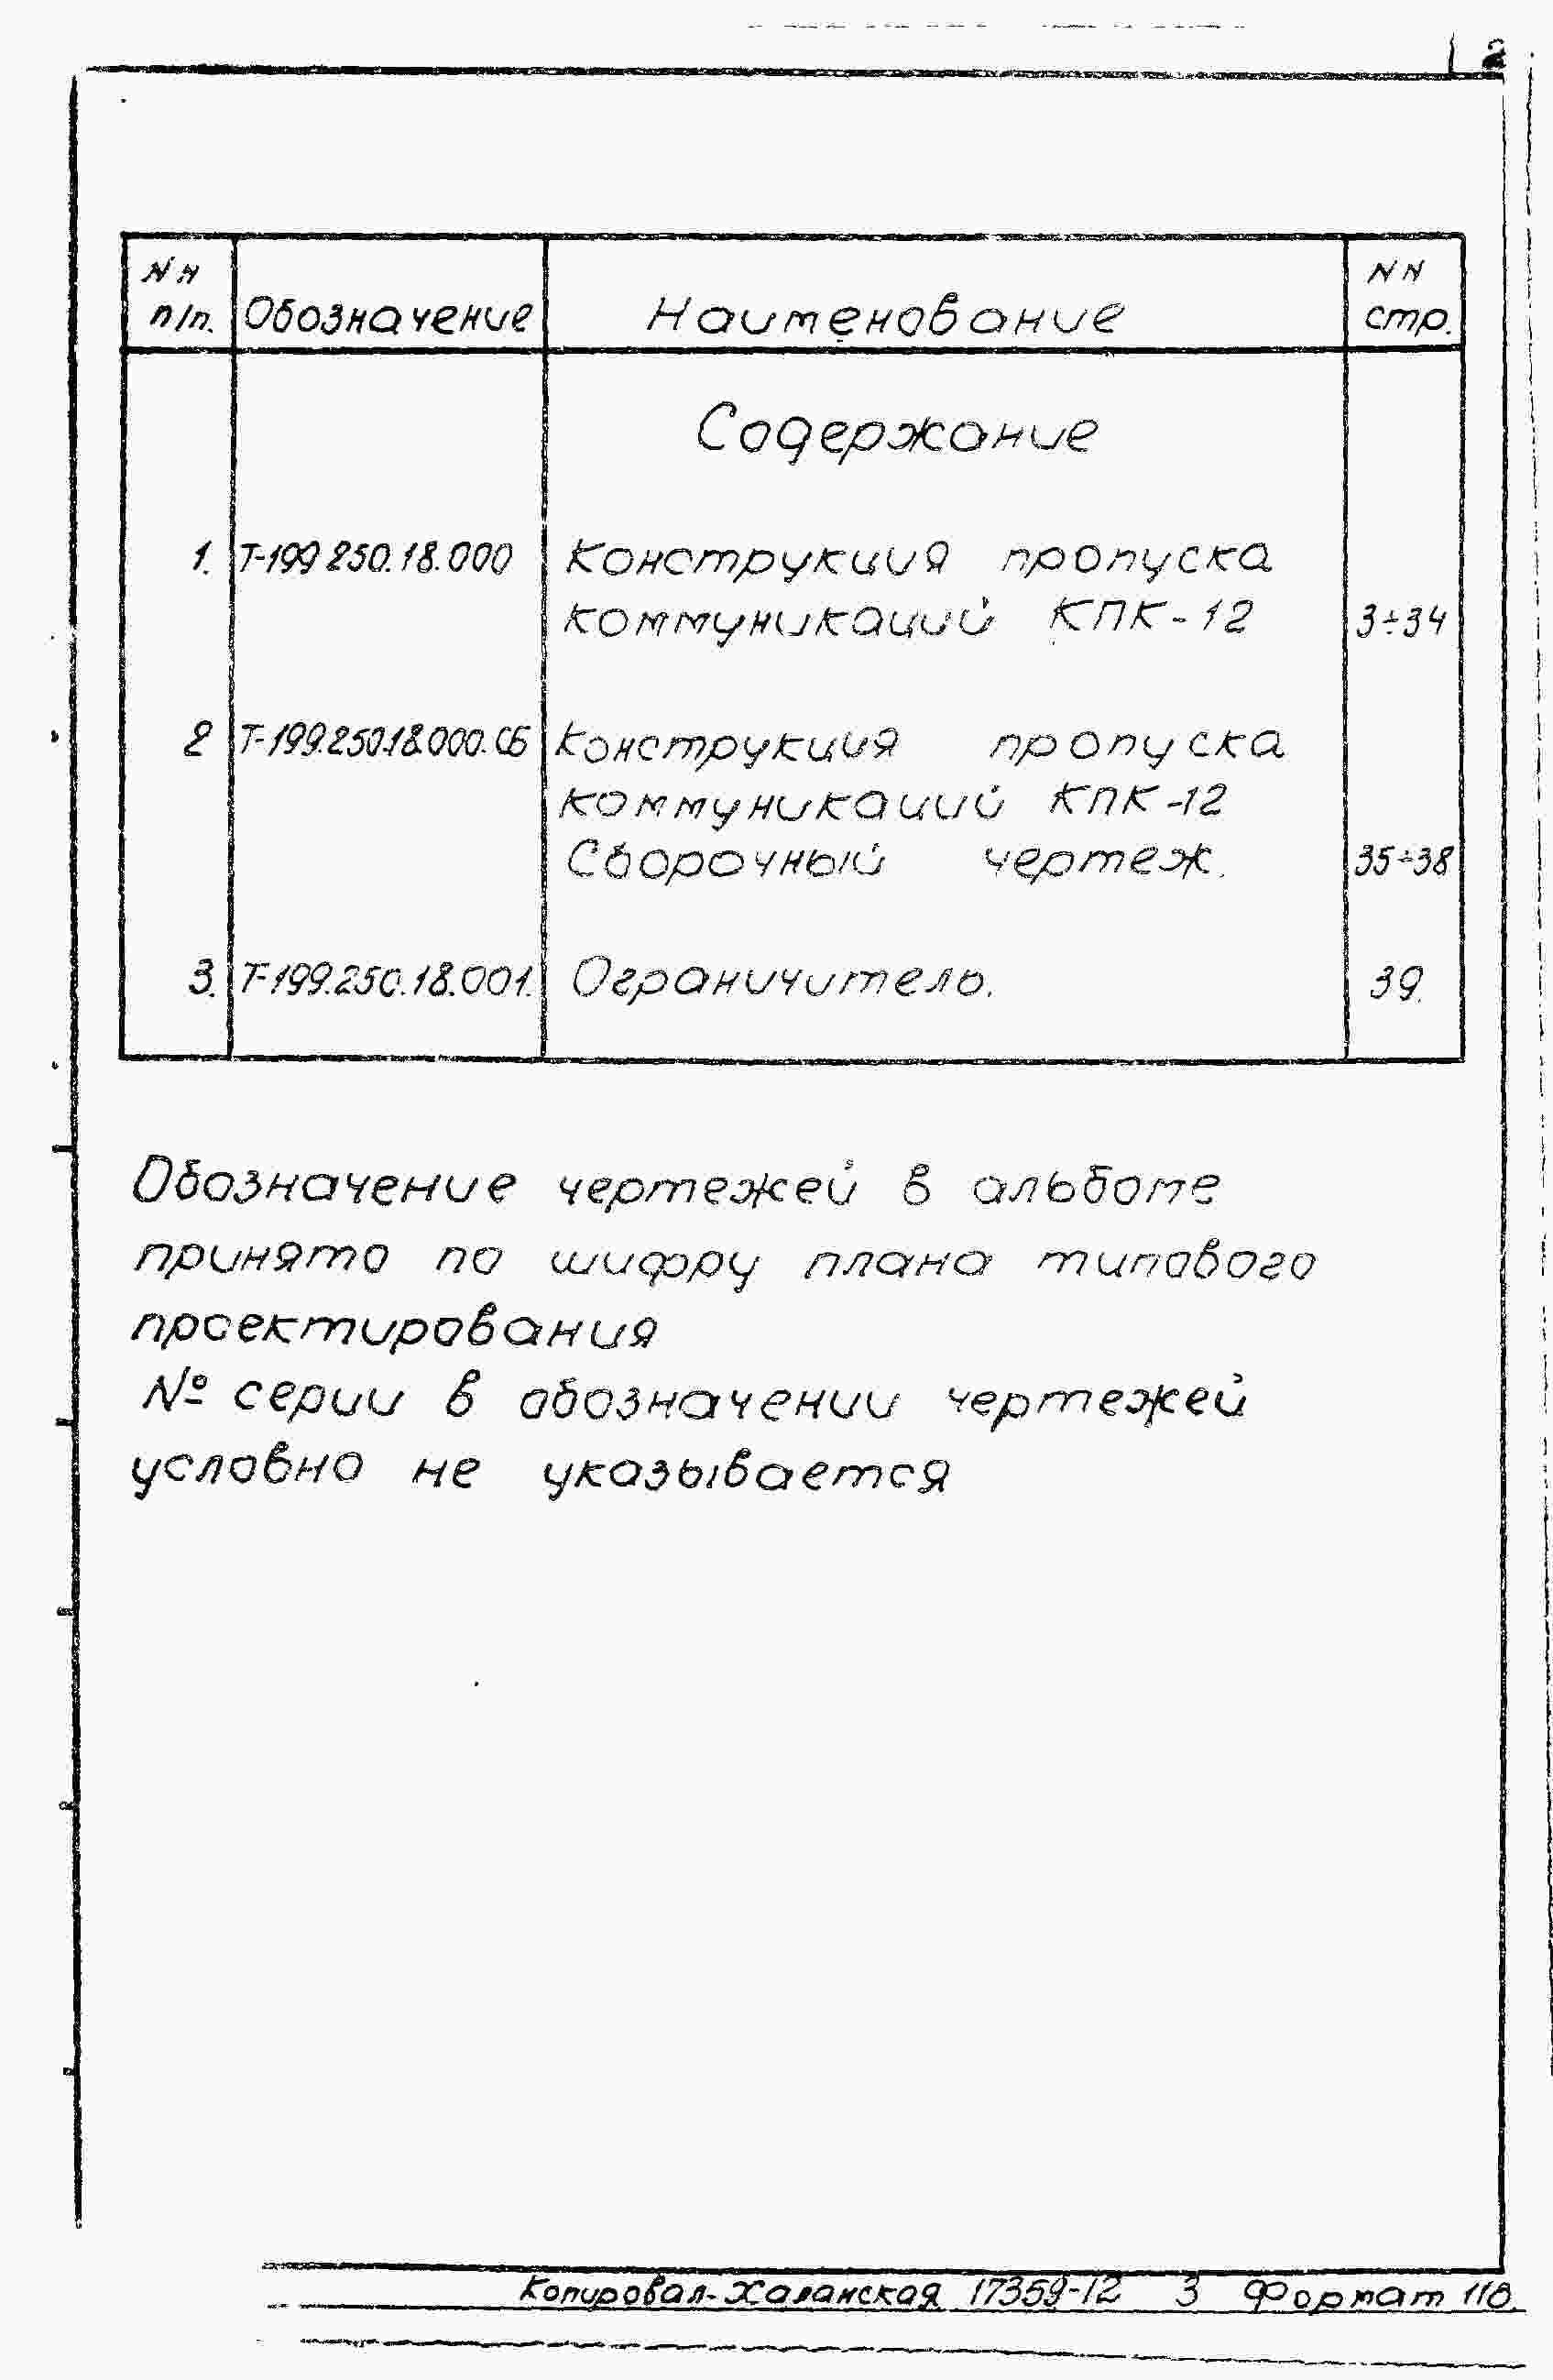 2
NN п/п. Обозначение Наименование NN стр.
Содержание
1. Т-199.250.18.000 Конструкция пропуска
коммуникаций КПК-12 3÷34
2 Т-199.250.18.000.СБ Конструкция пропуска
коммуникаций КПК-12
Сборочный чертеж. 35÷38
3. Т-199.250.18.001. Ограничитель. 39.
Обозначение чертежей в альбоме
принято по шифру плана типового
проектирования
№ серии в обозначении чертежей
условно не указывается
Копировал- 17359-12 3 Формат